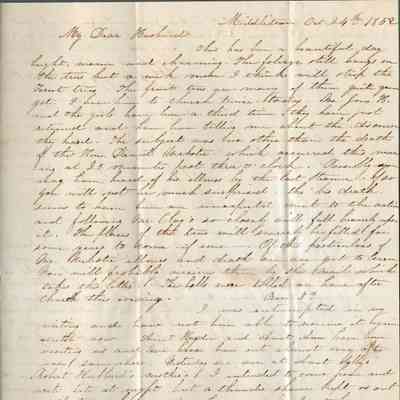 Middletown Oct 24th 1852
My Dear Husband
This has been a beautiful day
bright, warm and charming. The foliage still hangs on
the trees but a week more I think will strip the
forest trees. The fruit trees are many of them quite green
yet. I have been to church twice
and the girls have been a third time they have just
returned and have been telling me about the discourse
they heard. The subject was no other than the death
of the Hon. Daniel Webster which occurred this morn
ing at 3 o'clock. Possibly you
may have heard of his illness by the last Steamer. If so
you will not be much surprised. But his death
seems to have been an unexpected event to the nation
and following Mr Clay's so closely will fall heavily upon
it. The places of these two men will scarcely be filled for
some years to come if ever. Of the particulars of
Mr. Webster illness and death we are yet to learn
You will probably receive them by the
takes this letter. The bells were tolled an hour after
church this evening.
I was interrupted in my
writing and have not been able to resume it again
until now. Aunt and Aunt Ann have been
visiting us and have been here out a and after
Yesterday we were at Aunt
Robert Hubbard's mother's. I intended to come home and
write last night but a thunder shower held us out